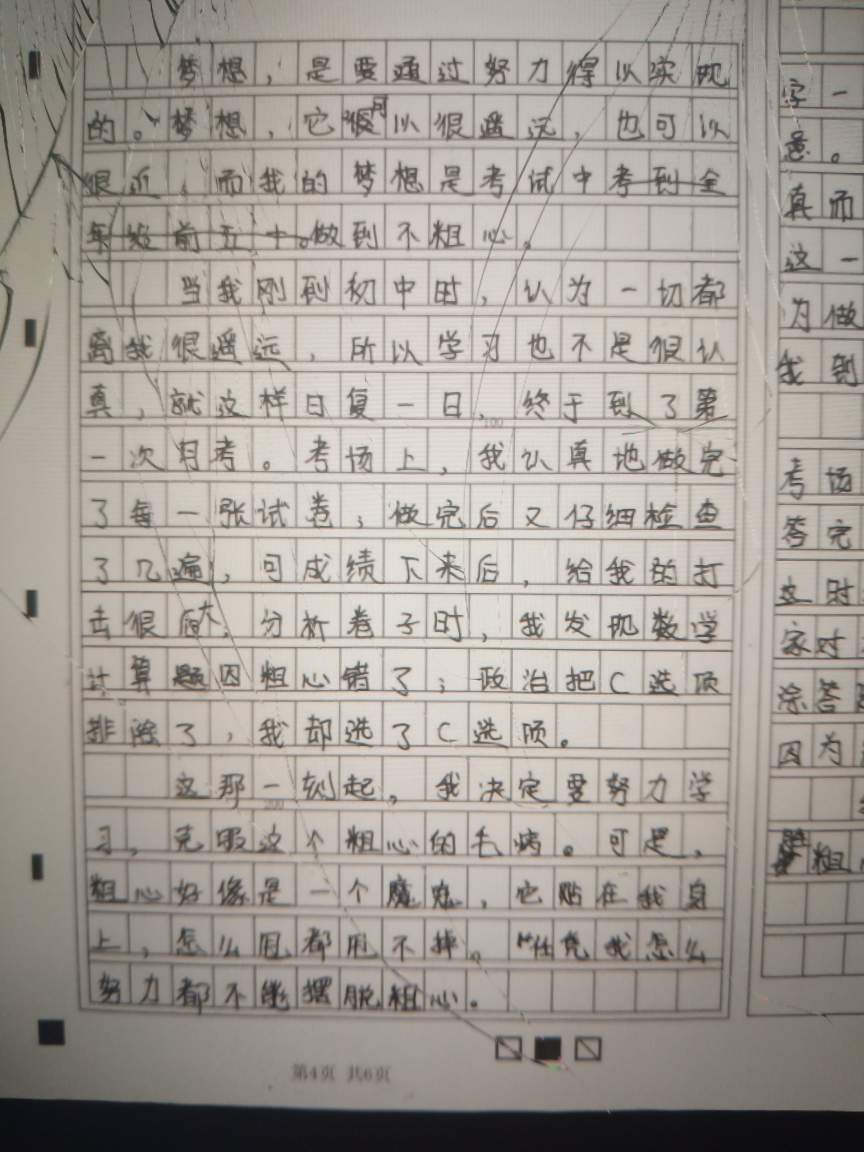 梦想，是要通过努力得以实现
的。梦想，它可以很遥远，也可以
很近，而我的梦想是考试中考到全
年级前五十。做到不粗心。
当我刚到初中时，认为一切都
离我很遥远，所以学习也不是很认
真，就这样日复一日，终于到了第
一次月考。考场上，我认真地做完
了每一张试卷，做完后又仔细检查
了几遍，可成绩下来后，给我的打
击很大，分析卷子时，我发现数学
计算题因粗心错了；政治把C选项
排除了，我却选了C选项。
这那一刻起，我决定要努力学
习，克服这个粗心的毛病。可是，
粗心好像是一个魔鬼，它贴在我身
上，怎么甩都甩不掉。任凭我怎么
努力都不能摆脱粗心。
第4页 共6页
字一
意。
真而
这一
为做
我到
考场
答完
这时
家对
涂答
因为
粗